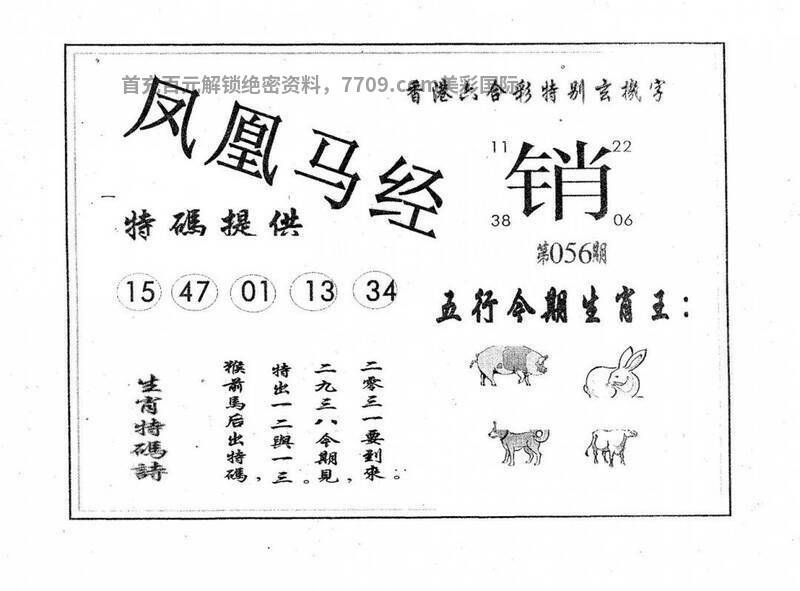 首充百元解锁绝密资料，7709.com美彩国际
香港六合彩特别玄機字
凤凰马经
11 22
销
38 06
第056期
特碼提供
15 47 01 13 34
五行今期生肖王：
生肖特碼詩
猴前馬后出特碼，
特出一二與一三。
二九三八今期見，
二零三一要到來。